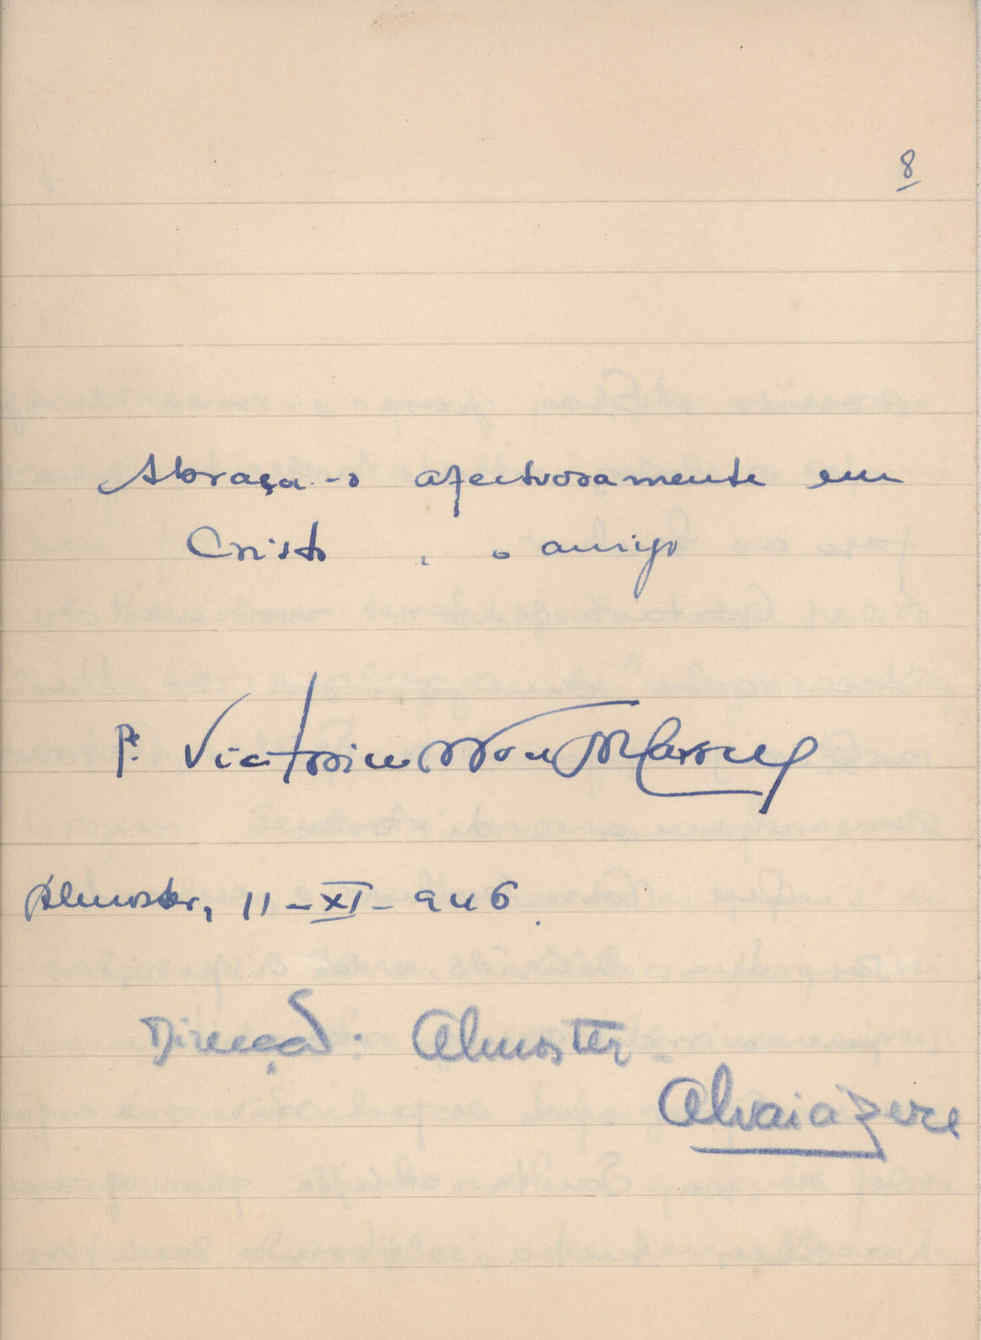 8
Abraça-o afectuosamente em
Cristo, o amigo
P.e Victorino
Almoster, 11-XI-946.
Direcção: Almoster -
Alvaiazere